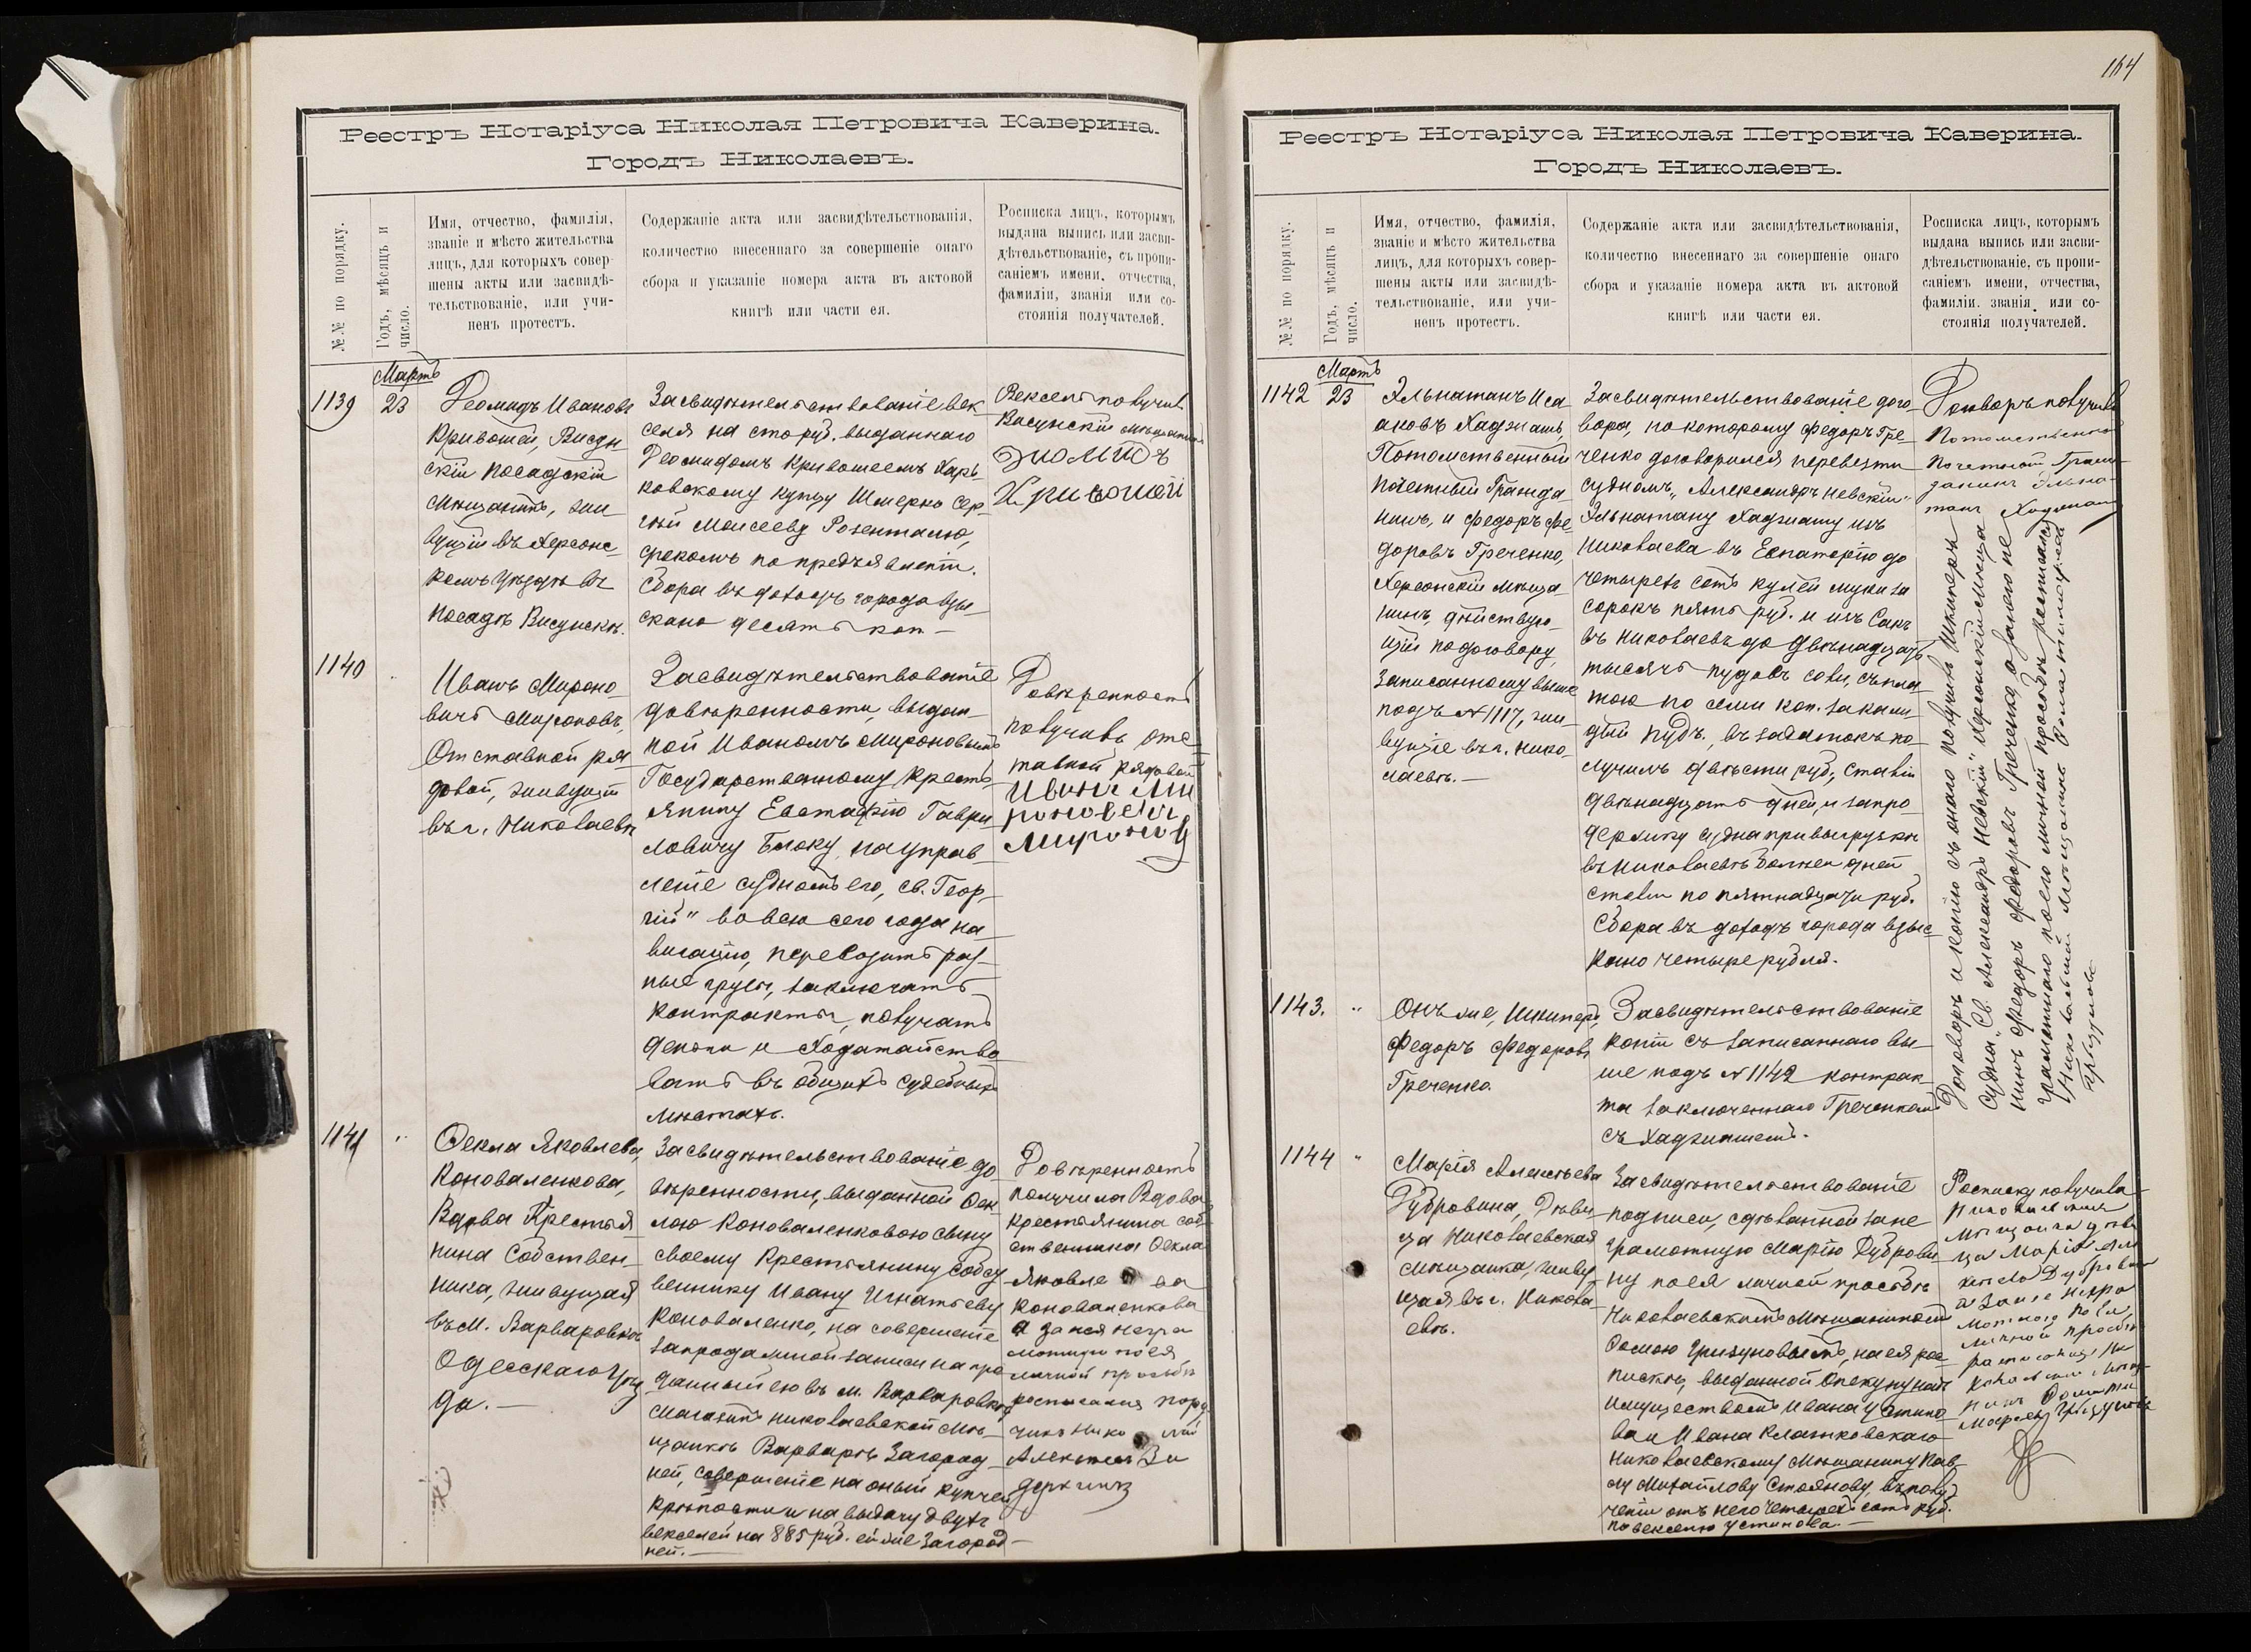 Реестръ Нотаріуса Николая Петровича Каверина.
Городъ Николаевъ.
№№ по порядку.
Годъ, мѣсяцъ и
число.
Имя, отчество, фамилія,
званіе и мѣсто жительства
лицъ, для которыхъ совер-
шены акты или засвидѣ-
тельствованіе, или учи-
ненъ протестъ.
Содержаніе акта или засвидѣтельствованія,
количество внесеннаго за совершеніе онаго
сбора и указаніе номера акта въ актовой
книгѣ или части ея.
Росписка лицъ, которымъ
выдана выпись или засви-
дѣтельствованіе, съ пропи-
саніемъ имени, отчества,
фамиліи, званія или со-
стоянія получателей.
Мартъ
1139
23
Деомидъ Ивановъ
Кривошей, Висун
скій посадскій
мѣщанинъ, жи
вущій въ Херсонс-
комъ уѣздѣ въ
посадѣ Висунскѣ.
Засвидѣтельствованіе век
селя на сто руб. выданнаго
Деомидомъ Кривошеемъ Харь
ковскому купцу Шмерко Сер-
гѣй Моисееву Розенталю,
срокомъ по предъявленіи.
Сбора въ доходъ города взы-
скано десять коп-
Вексель получилъ
Висунскій мѣщанинъ
Диомидъ
Кривошей
1140
Иванъ Мироно
вичъ Мироновъ,
Отставной ря
довой, живущій
въ г. Николаевѣ
Засвидѣтельствованіе
довѣренности, выдан-
ной Иваномъ Мироновымъ
Государственному кресть
янину Евстафію Гаври
ловичу Блоку, на управ-
леніе судномъ его, „св. Геор-
гій" во всю сего года на-
вигацію, перевозить раз-
ные грузы, заключать
контракты, получать
деньги и ходатайство
вать въ общихъ судебныхъ
мѣстахъ.
Довѣренность
получивъ отс
тавной рядовой
Иванъ Ми
роновичъ
Мироновъ
1141
Ѳекла Яковлева,
Коноваленкова,
Вдова Крестья
нина Собствен-
ника, живущая
въ м. Варваровкѣ
Одесскаго уѣз
да.-
Засвидѣтельствованіе до
вѣренности, выданной Ѳек
лою Коноваленковою сыну
своему Крестьянину Собст
веннику Ивану Игнатьеву
Коноваленко, на совершеніе
запродажной записи на про
данный ею въ м. Варваровкѣ
магазинъ Николаевской мѣ-
щанкѣ Варварѣ Загород-
ней, совершеніе на оный купчей
крѣпости и на выдачу двухъ
векселей на 885 руб. ей же Загород-
ней.-
Довѣренность
получила Вдова
крестьянина соб
ственника Ѳекла
Яковлева
Коноваленкова
а за нея негра
мотную по ея
личной просьбѣ
росписался пору
чикъ Николай
Алексѣевъ
164
Реестръ Нотаріуса Николая Петровича Каверина.
Городъ Николаевъ.
№№ по порядку.
Годъ, мѣсяцъ и
число.
Имя, отчество, фамилія,
званіе и мѣсто жительства
лицъ, для которыхъ совер-
шены акты или засвидѣ-
тельствованіе, или учи-
ненъ протестъ.
Содержаніе акта или засвидѣтельствованія,
количество внесеннаго за совершеніе онаго
сбора и указаніе номера акта въ актовой
книгѣ или части ея.
Росписка лицъ, которымъ
выдана выпись или засви-
дѣтельствованіе, съ пропи-
саніемъ имени, отчества,
фамиліи, званія или со-
стоянія получателей.
Мартъ
1142
23
Эльнатанъ Иса
аковъ Хаджашъ,
Потомственный
почетный Гражда
нинъ, и Федоръ Фе
доровъ Греченко,
Херсонскій мѣща
нинъ, дѣйствую-
щій по договору,
записанному выше
подъ №1117, жи-
вущіе въ г. Нико-
лаевѣ.-
Засвидѣтельствованіе дого
вора, по которому Федоръ Гре
ченко договорился перевезти
судномъ „Александръ Невскій"
Эльнатану Хаджашу изъ
Николаева въ Евпаторію до
четырехъ сотъ кулей муки за
сорокъ пять руб. и изъ Сакъ
въ Николаевъ до двѣнадцать
тысячъ пудовъ соли, съ пла
тою по семи коп. за каж-
дый пудъ, въ задатокъ по-
лучилъ двѣсти руб, сталій
двѣнадцать дней, и за про
держку судна при выгрузкѣ
въ Николаевѣ болѣе дней
сталій по пятнадцати руб.
Сбора въ доходъ города взыс-
кано четыре рубля.
Договоръ получилъ
Потомственный
почетный Граж
данинъ Эльна-
танъ Хаджашъ
1143.
Онъ же, Шкиперъ,
Федоръ Федоровъ
Греченко.
Засвидѣтельствованіе
копіи съ записаннаго вы-
ше подъ №1142 контрак-
та заключеннаго Греченкомъ
съ Хаджашемъ.
Договоръ и копію съ онаго получилъ Шкиперъ
судна „Св. Александръ Невскій" Херсонскій мѣща
нинъ Федоръ Федоровъ Греченко, а за него не
грамотнаго по его личной просьбѣ росписался
Николаевскій мѣщанинъ
Гризуновъ
1144
Марія Алексѣева
Дубровина, Дѣви
ца Николаевская
мѣщанка, живу
щая въ г. Никола-
евѣ.
Засвидѣтельствованіе
подписи, сдѣланной за не
грамотную Марію Дуброви
ну по ея личной просьбѣ
Николаевскимъ мѣщаниномъ
Ѳомою Гризуновымъ, на ея рос
пискѣ, выданной опекуну надъ
имуществомъ Ивана Устино
ва и Ивана Клатковскаго
Николаевскому мѣщанину Пав-
лу Михайлову Стоянову, въ полу
ченіи отъ него четырехъ сотъ руб.
по векселю Устинова.-
Росписку получила
Николаевская
мѣщанка дѣви
ца Марія Алек
сѣева Дубровина
а за нее негра
мотную по ея
личной просьбѣ
росписался Ни
колаевскій мѣща
нинъ
Гризуновъ